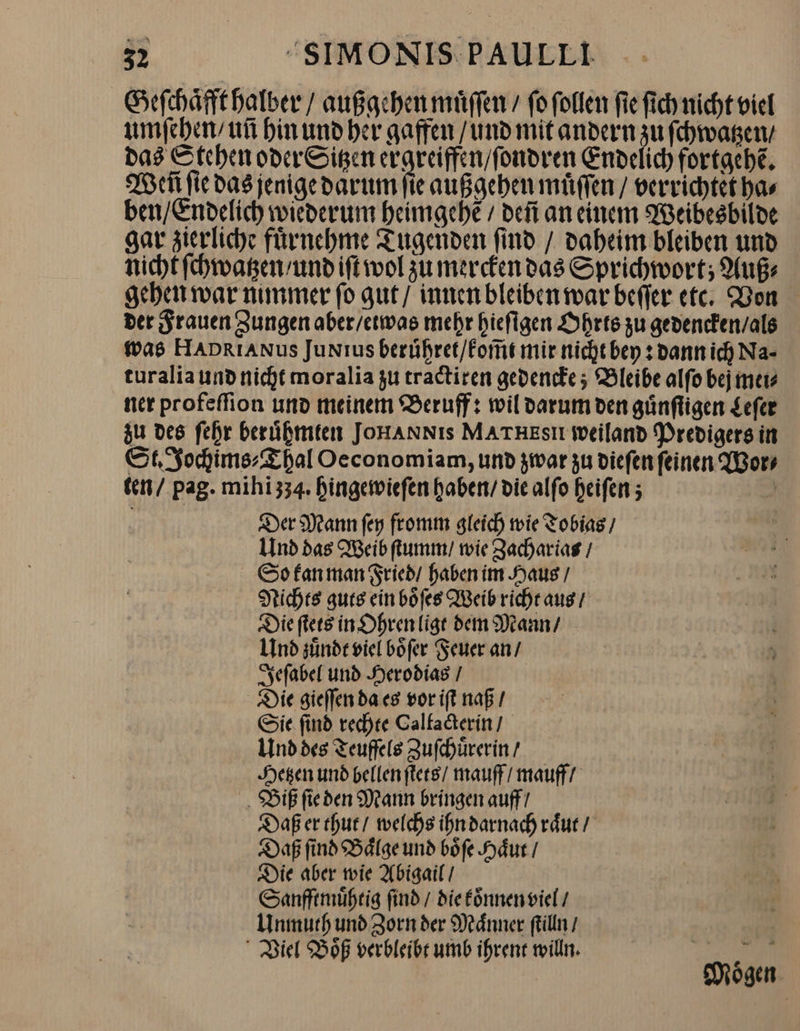 32 SIMONIS PAULLI
Geſchaͤfft halber / außgehen muͤſſen / ſo ſollen ſie ſich nicht viel
umſehen / uñ hin und her gaffen / und mit andern zu ſchwatzen /
das Stehen oder Sitzen ergreiffen / ſondren Endelich fortgehẽ.
Weñ ſie das jenige darum ſie außgehen muͤſſen / verrichtet ha⸗
ben / Endelich wiederum heimgehẽ / deñ an einem Weibesbilde
gar zierliche fuͤrnehme Tugenden ſind / daheim bleiben und
nicht ſchwatzen / und iſt wol zu mercken das Sprichwort; Auß⸗
gehen war nimmer ſo gut / innen bleiben war beſſer etc. Von
der Frauen Zungen aber / etwas mehr hieſigen Ohrts zu gedencken / als
was HADRIANUS JUNIUS beruͤhret / kom̃t mir nicht bey : dann ich Na-
turalia und nicht moralia zu tractiren gedencke ; Bleibe alſo bej mei⸗
ner profeſſion und meinem Beruff : wil darum den guͤnſtigen Leſer
zu des ſehr beruͤhmten JOHANNIS MATHESII weiland Predigers in
St. Jochims⸗Thal Oeconomiam, und zwar zu dieſen ſeinen Wor⸗
ten / pag. mihi 334. hingewieſen haben / die alſo heiſen ;
Der Mann ſey fromm gleich wie Tobias /
Und das Weib ſtumm / wie Zacharias /
So kan man Fried / haben im Haus /
Nichts guts ein boͤſes Weib richt aus /
Die ſtets in Ohren ligt dem Mann /
Und zuͤndt viel boͤſer Feuer an /
Jeſabel und Herodias /
Die gieſſen da es vor iſt naß /
Sie ſind rechte Calfacterin /
Und des Teuffels Zuſchuͤrerin /
Hetzen und bellen ſtets / mauff / mauff /
Biß ſie den Mann bringen auff /
Daß er thut / welchs ihn darnach raͤut /
Daß ſind Baͤlge und boͤſe Haͤut /
Die aber wie Abigail /
Sanfftmuͤhtig ſind / die koͤnnen viel /
Unmuth und Zorn der Maͤnner ſtilln /
Viel Boͤß verbleibt umb ihrent willn.
Moͤgen